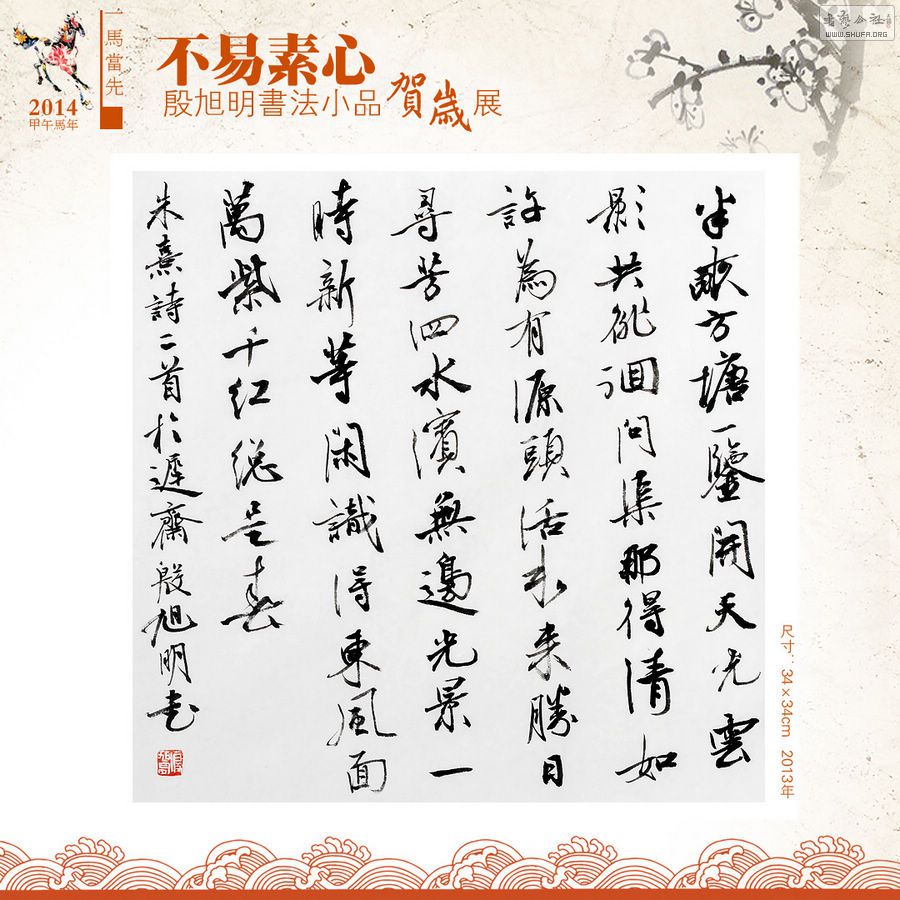 書藝公社
WWW.SHUFA.ORG
一馬當先
2014
甲午馬年
不易素心
殷旭明書法小品賀歲展
半畝方塘一鑒開天光雲
影共徘徊問渠那得清如
許為有源頭活水來勝日
尋芳泗水濱無邊光景一
時新等閑識得東風面
萬紫千紅總是春
朱熹詩二首於遲齋殷旭明書
尺寸：34×34cm 2013年